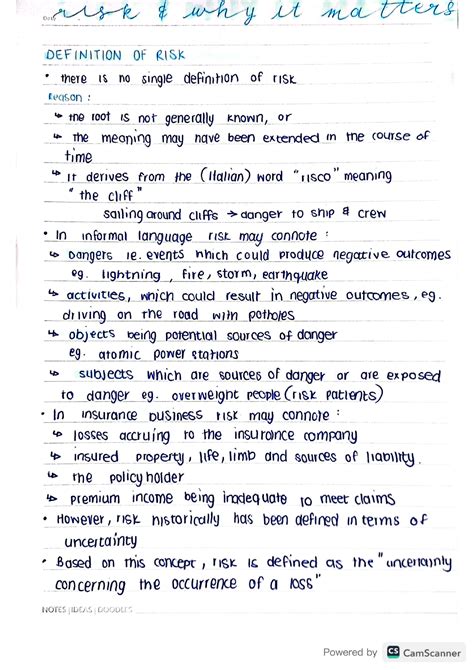 risk & why it matters
Date
DEFINITION OF RISK
• there is no single definition of risk
Reason :
↳ the root is not generally known, or
↳ the meaning may have been extended in the course of
time
↳ it derives from the (Italian) word "risco" meaning
"the cliff"
sailing around cliffs → danger to ship & crew
• In informal language risk may connote :
↳ Dangers ie. events which could produce negative outcomes
eg. lightning, fire, storm, earthquake
↳ activities, which could result in negative outcomes, eg.
driving on the road with potholes
↳ objects being potential sources of danger
eg. atomic power stations
↳ subjects which are sources of danger or are exposed
to danger eg. overweight people (risk patients)
• In insurance business risk may connote :
↳ losses accruing to the insurance company
↳ insured property, life, limb and sources of liability.
↳ the policy holder
↳ premium income being inadequate to meet claims
• However, risk historically has been defined in terms of
uncertainty
• Based on this concept, risk is defined as the "uncertainly
concerning the occurrence of a loss"
NOTES | IDEAS | DOODLES
Powered by CS CamScanner